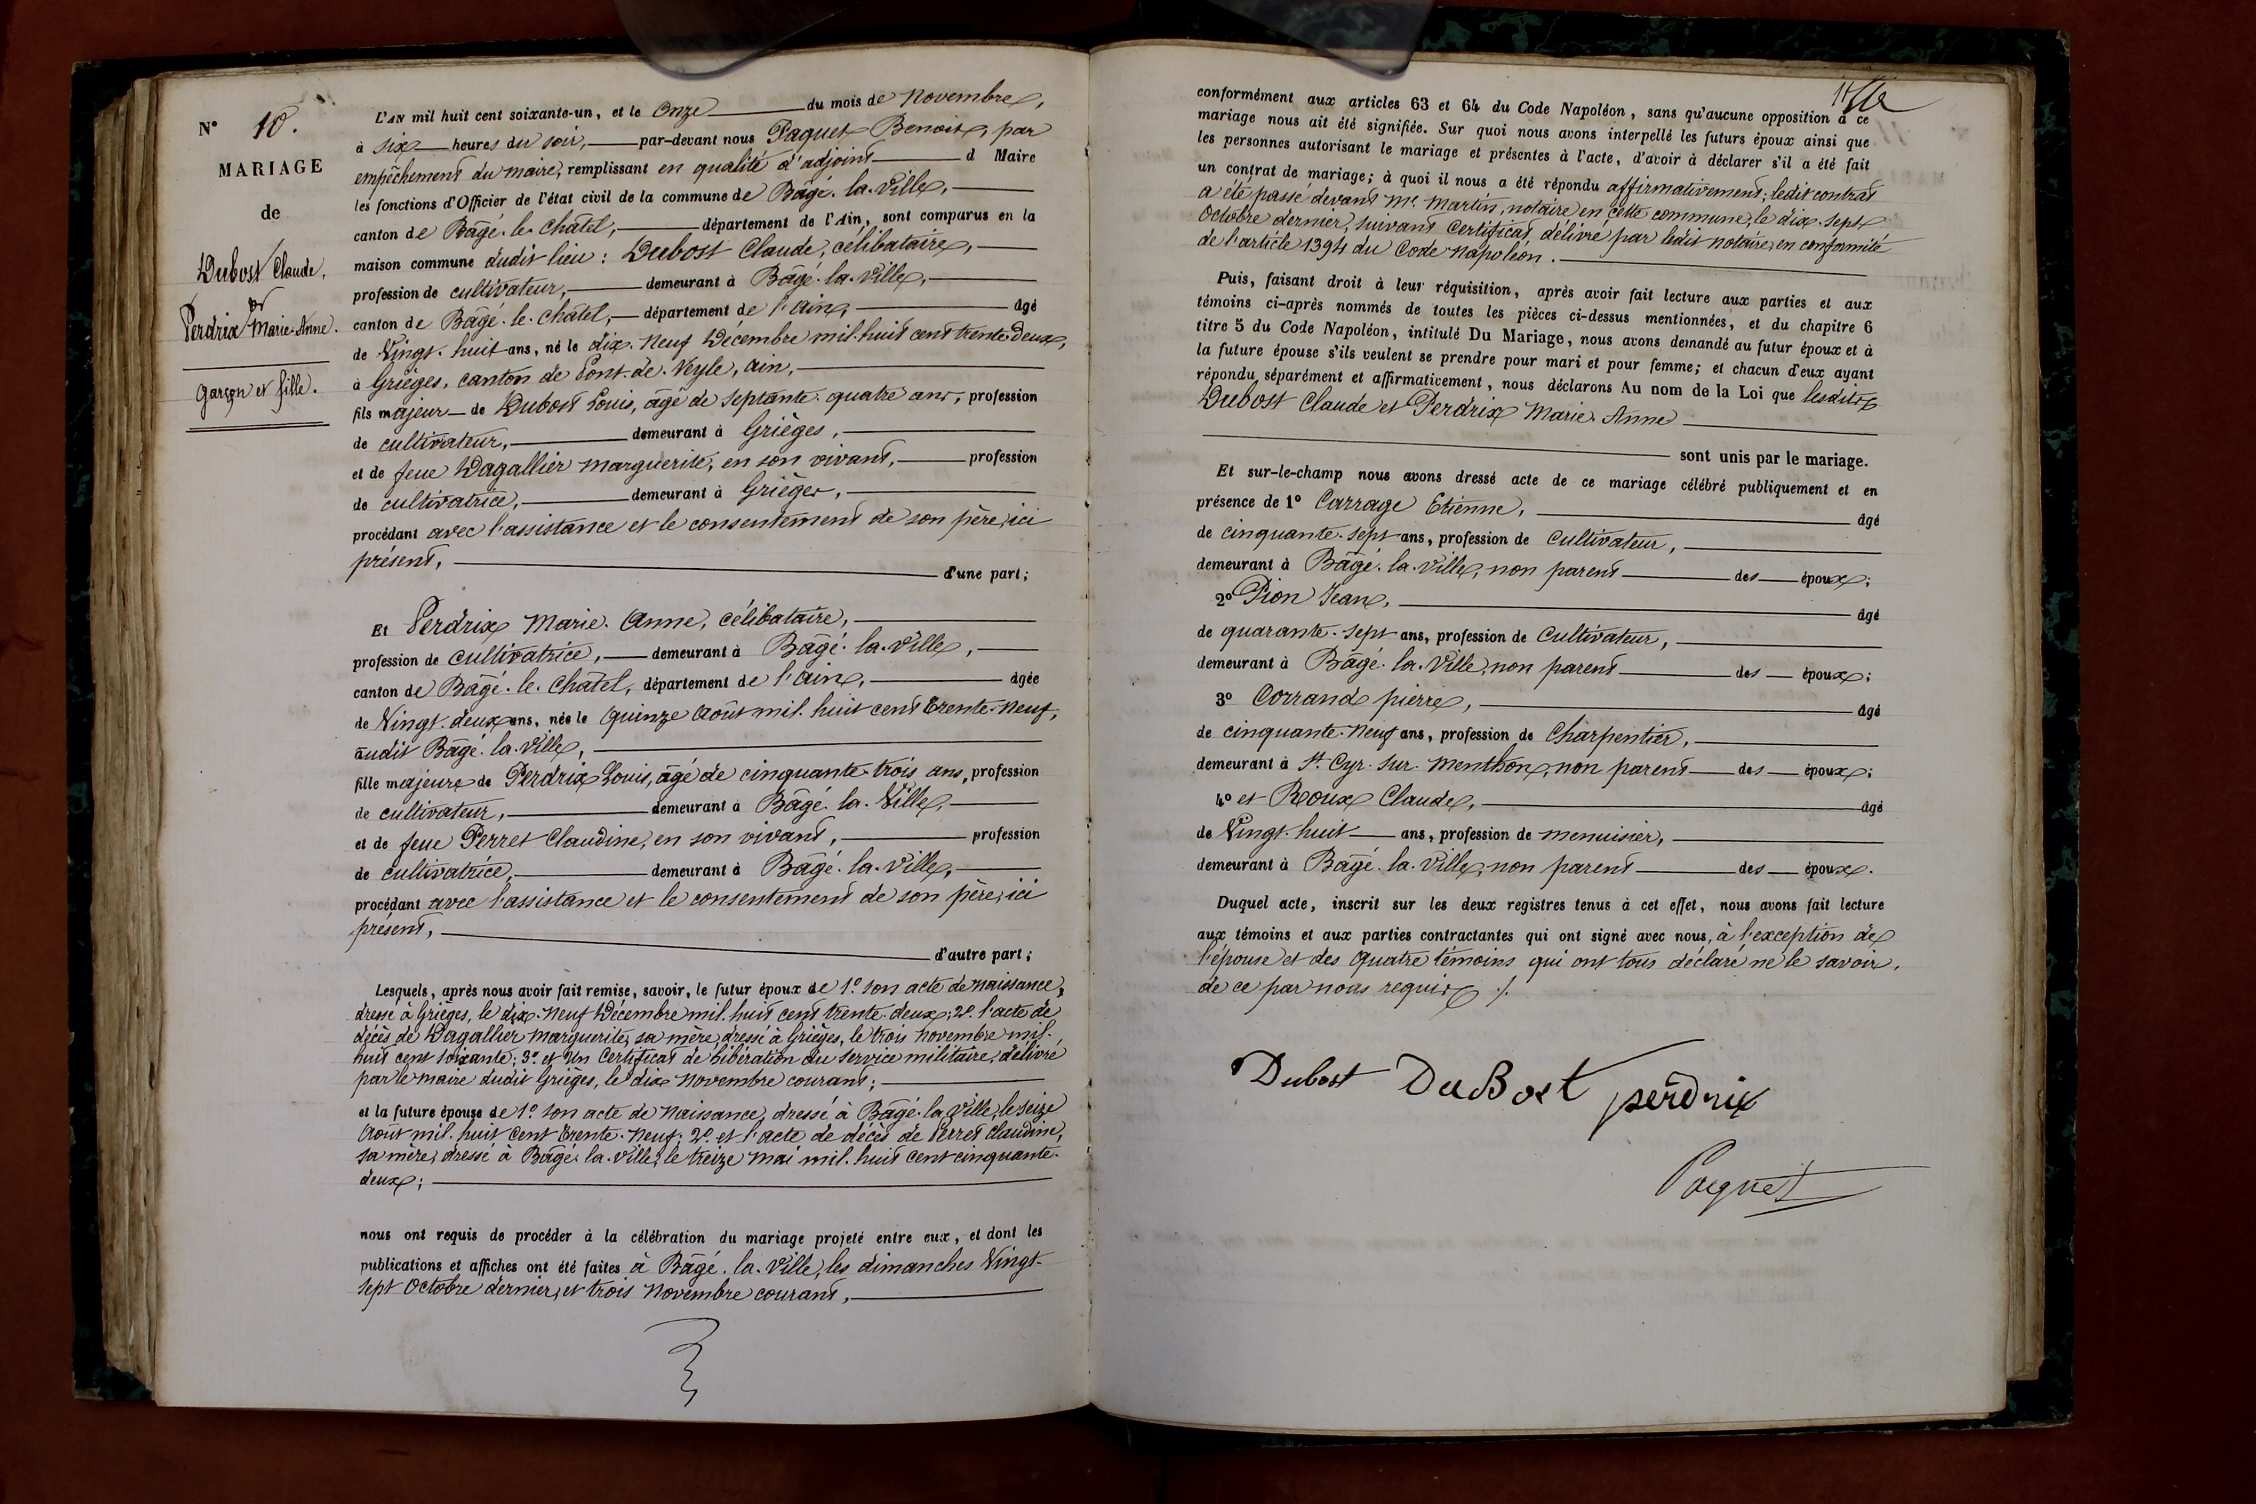 N° 10.
MARIAGE
de
Dubost Claude,
et
Perdrix Marie-Anne.
garçon et fille.
L'AN mil huit cent soixante-un, et le onze du mois de Novembre,
à six heures du soir, par-devant nous Paquet Benoit, par
empêchement du maire, remplissant en qualité d'adjoint d Maire
les fonctions d'Officier de l'état civil de la commune de Bâgé-la-Ville,
canton de Bâgé-le-Châtel, département de l'Ain, sont comparus en la
maison commune dudit lieu : Dubost Claude, célibataire,
profession de cultivateur, demeurant à Bâgé-la-Ville,
canton de Bâgé-le-Châtel, département de l'ain, âgé
de Vingt-huit ans, né le dix-neuf Décembre mil-huit cent trente-deux,
à Grièges, canton de Pont-de-Veyle, ain,
fils majeur de Dubost Louis, âgé de septante-quatre ans, profession
de cultivateur, demeurant à Grièges,
et de feue Dagallier marguerite, en son vivant, profession
de cultivatrice, demeurant à Grièges,
procédant avec l'assistance et le consentement de son père, ici
présent, d'une part;
Et Perdrix Marie-Anne, célibataire,
profession de cultivatrice, demeurant à Bâgé-la-Ville,
canton de Bâgé-le-Châtel, département de l'ain, âgée
de Vingt-deux ans, née le quinze août mil-huit cent trente-neuf,
audit Bâgé-la-Ville,
fille majeure de Perdrix Louis, âgé de cinquante-trois ans, profession
de cultivateur, demeurant à Bâgé-la-Ville,
et de feue Perret Claudine, en son vivant, profession
de cultivatrice, demeurant à Bâgé-la-Ville,
procédant avec l'assistance et le consentement de son père, ici
présent, d'autre part;
Lesquels, après nous avoir fait remise, savoir, le futur époux de 1° son acte de naissance,
dressé à Grièges, le dix-neuf Décembre mil-huit cent trente-deux; 2° l'acte de
décès de Dagallier marguerite, sa mère, dressé à Grièges, le trois novembre mil-
huit cent soixante; 3° et un Certificat de libération du service militaire, délivré
par le maire dudit Grièges, le dix Novembre courant;
et la future épouse de 1° son acte de naissance, dressé à Bâgé-la-Ville, le seize
Août mil-huit cent trente-neuf; 2° et l'acte de décès de Perret Claudine,
sa mère, dressé à Bâgé-la-Ville, le treize mai mil-huit cent cinquante-
deux;
nous ont requis de procéder à la célébration du mariage projeté entre eux, et dont les
publications et affiches ont été faites à Bâgé-la-Ville, les dimanches Vingt-
sept Octobre dernier, et trois Novembre courant,
conformément aux articles 63 et 64 du Code Napoléon, sans qu'aucune opposition à ce
mariage nous ait été signifiée. Sur quoi nous avons interpellé les futurs époux ainsi que
les personnes autorisant le mariage et présentes à l'acte, d'avoir à déclarer s'il a été fait
un contrat de mariage; à quoi il nous a été répondu affirmativement; ledit contrat
a été passé devant Me Martin, notaire en cette commune, le dix-sept
Octobre dernier, suivant Certificat délivré par ledit notaire, en conformité
de l'article 1394 du Code Napoléon.
Puis, faisant droit à leur réquisition, après avoir fait lecture aux parties et aux
témoins ci-après nommés de toutes les pièces ci-dessus mentionnées, et du chapitre 6
titre 5 du Code Napoléon, intitulé Du Mariage, nous avons demandé au futur époux et à
la future épouse s'ils veulent se prendre pour mari et pour femme; et chacun d'eux ayant
répondu séparément et affirmativement, nous déclarons Au nom de la Loi que lesdits
Dubost Claude et Perdrix Marie-Anne
sont unis par le mariage.
Et sur-le-champ nous avons dressé acte de ce mariage célébré publiquement et en
présence de 1° Carrage Etienne, âgé
de cinquante-sept ans, profession de cultivateur,
demeurant à Bâgé-la-Ville, non parent des époux;
2° Pion Jean, âgé
de quarante-sept ans, profession de cultivateur,
demeurant à Bâgé-la-Ville, non parent des époux;
3° Corrand pierre, âgé
de cinquante-neuf ans, profession de charpentier,
demeurant à St Cyr-sur-Menthon, non parent des époux;
4° et Roux Claude, âgé
de Vingt-huit ans, profession de menuisier,
demeurant à Bâgé-la-Ville, non parent des époux.
Duquel acte, inscrit sur les deux registres tenus à cet effet, nous avons fait lecture
aux témoins et aux parties contractantes qui ont signé avec nous, à l'exception de
l'épouse et des quatre témoins qui ont tous déclaré ne le savoir,
de ce par nous requis ./.
Dubost DuBost perdrix
Paquet